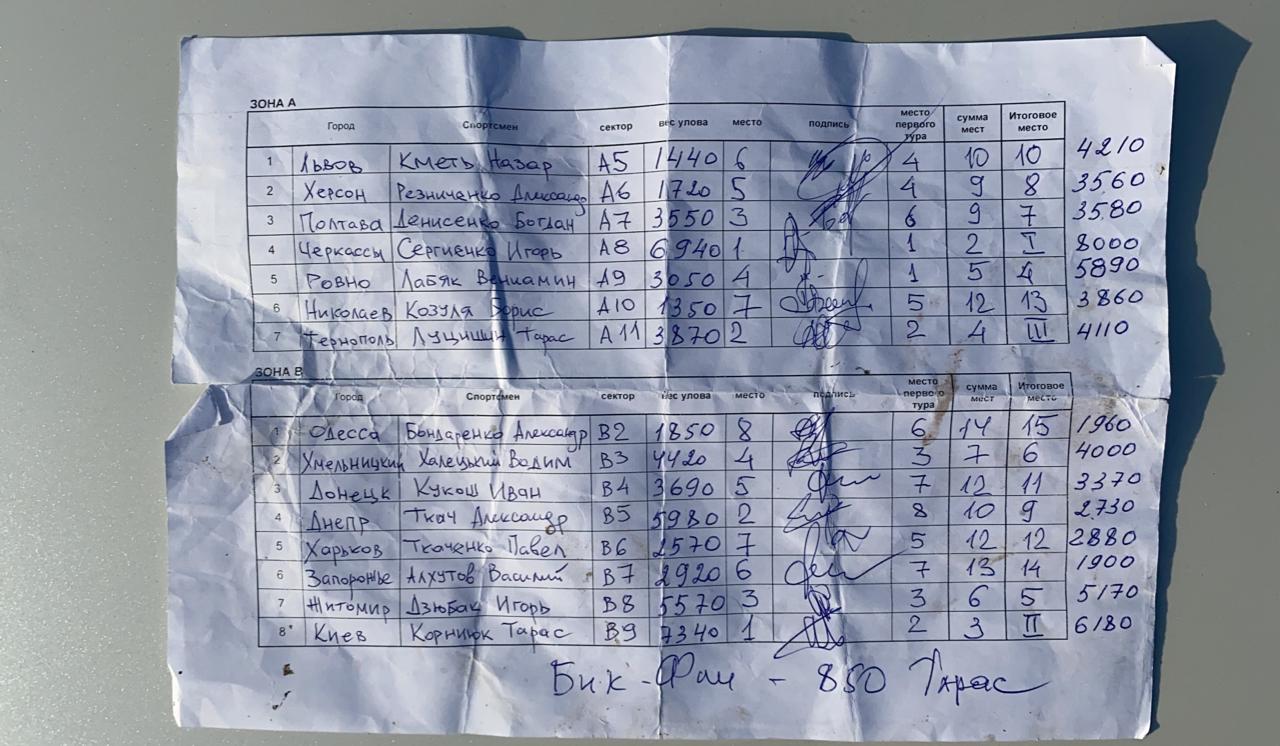 ЗОНА А
Город Спортсмен сектор вес улова место подпись место первого тура сумма мест Итоговое место
1 Львов Кметь Назар А5 1440 6 4 10 10 4210
2 Херсон Резниченко Александр А6 1720 5 4 9 8 3560
3 Полтава Денисенко Богдан А7 3550 3 6 9 7 3580
4 Черкассы Сергиенко Игорь А8 6940 1 1 2 I 8000
5 Ровно Лабяк Вениамин А9 3050 4 1 5 4 5890
6 Николаев Козуля Борис А10 1350 7 5 12 13 3860
7 Тернополь Луцишин Тарас А11 3870 2 2 4 III 4110
ЗОНА В
Город Спортсмен сектор вес улова место подпись место первого тура сумма мест Итоговое место
1 Одесса Бондаренко Александр В2 1850 8 6 14 15 1960
2 Хмельницкий Халецький Вадим В3 4420 4 3 7 6 4000
3 Донецк Кукош Иван В4 3690 5 7 12 11 3370
4 Днепр Ткач Александр В5 5980 2 8 10 9 2730
5 Харьков Ткаченко Павел В6 2570 7 5 12 12 2880
6 Запорожье Алхутов Василий В7 2920 6 7 13 14 1900
7 Житомир Дзюбак Игорь В8 5570 3 3 6 5 5170
8* Киев Корниюк Тарас В9 7340 1 2 3 II 6180
Биг-Фиш - 850 Тарас